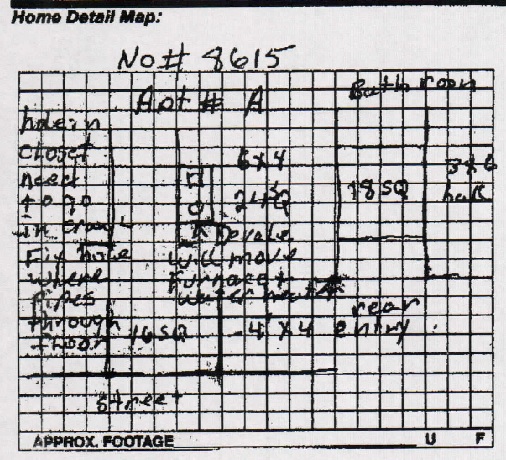 Home Detail Map:
No# 8615
Apt # A
Bathroom
hole in
closet
need
to go
in crawl
Fix hole
where
pipes
through
floor
6x4
24 SQ
18 SQ
3x6
hall
will move
Furnace +
water heater
16 SQ
4' x 4
rear
entry
street
APPROX. FOOTAGE
U F